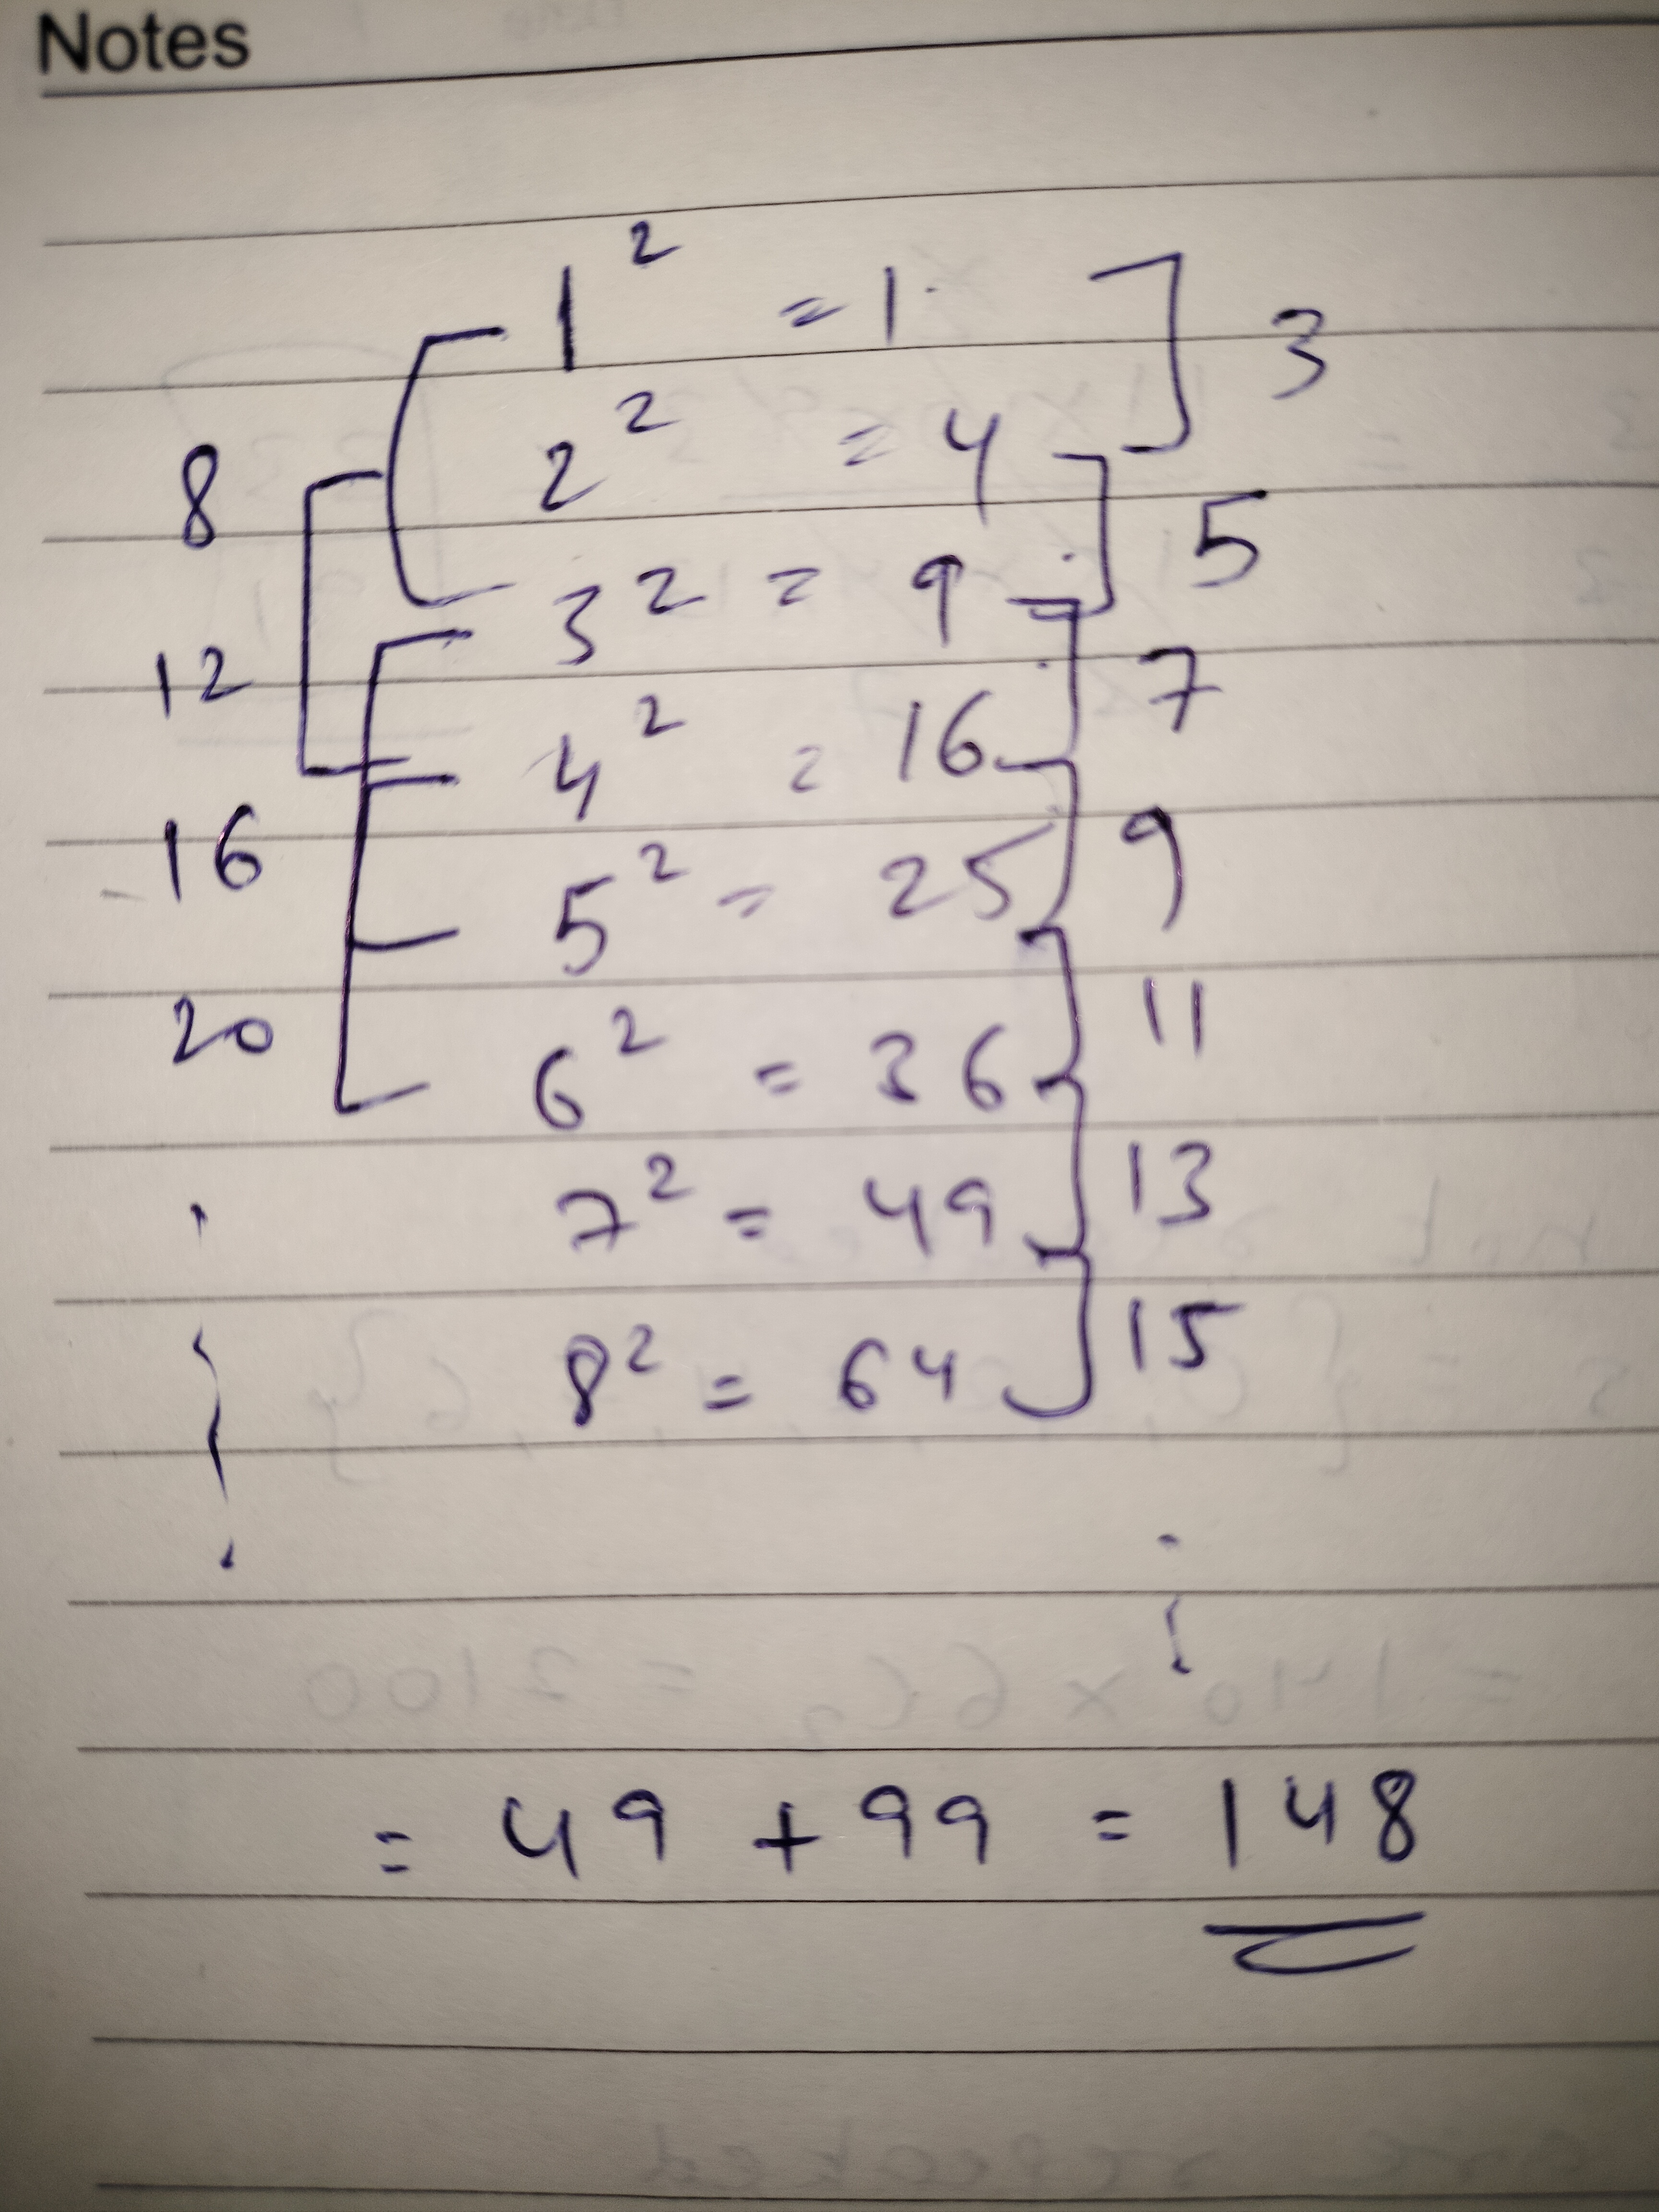 Notes
1² = 1 3
8 2² = 4
3² = 9 5
12 4² = 16 7
16 5² = 25 9
20 6² = 36 11
7² = 49 13
8² = 64 15
= 49 + 99 = 148